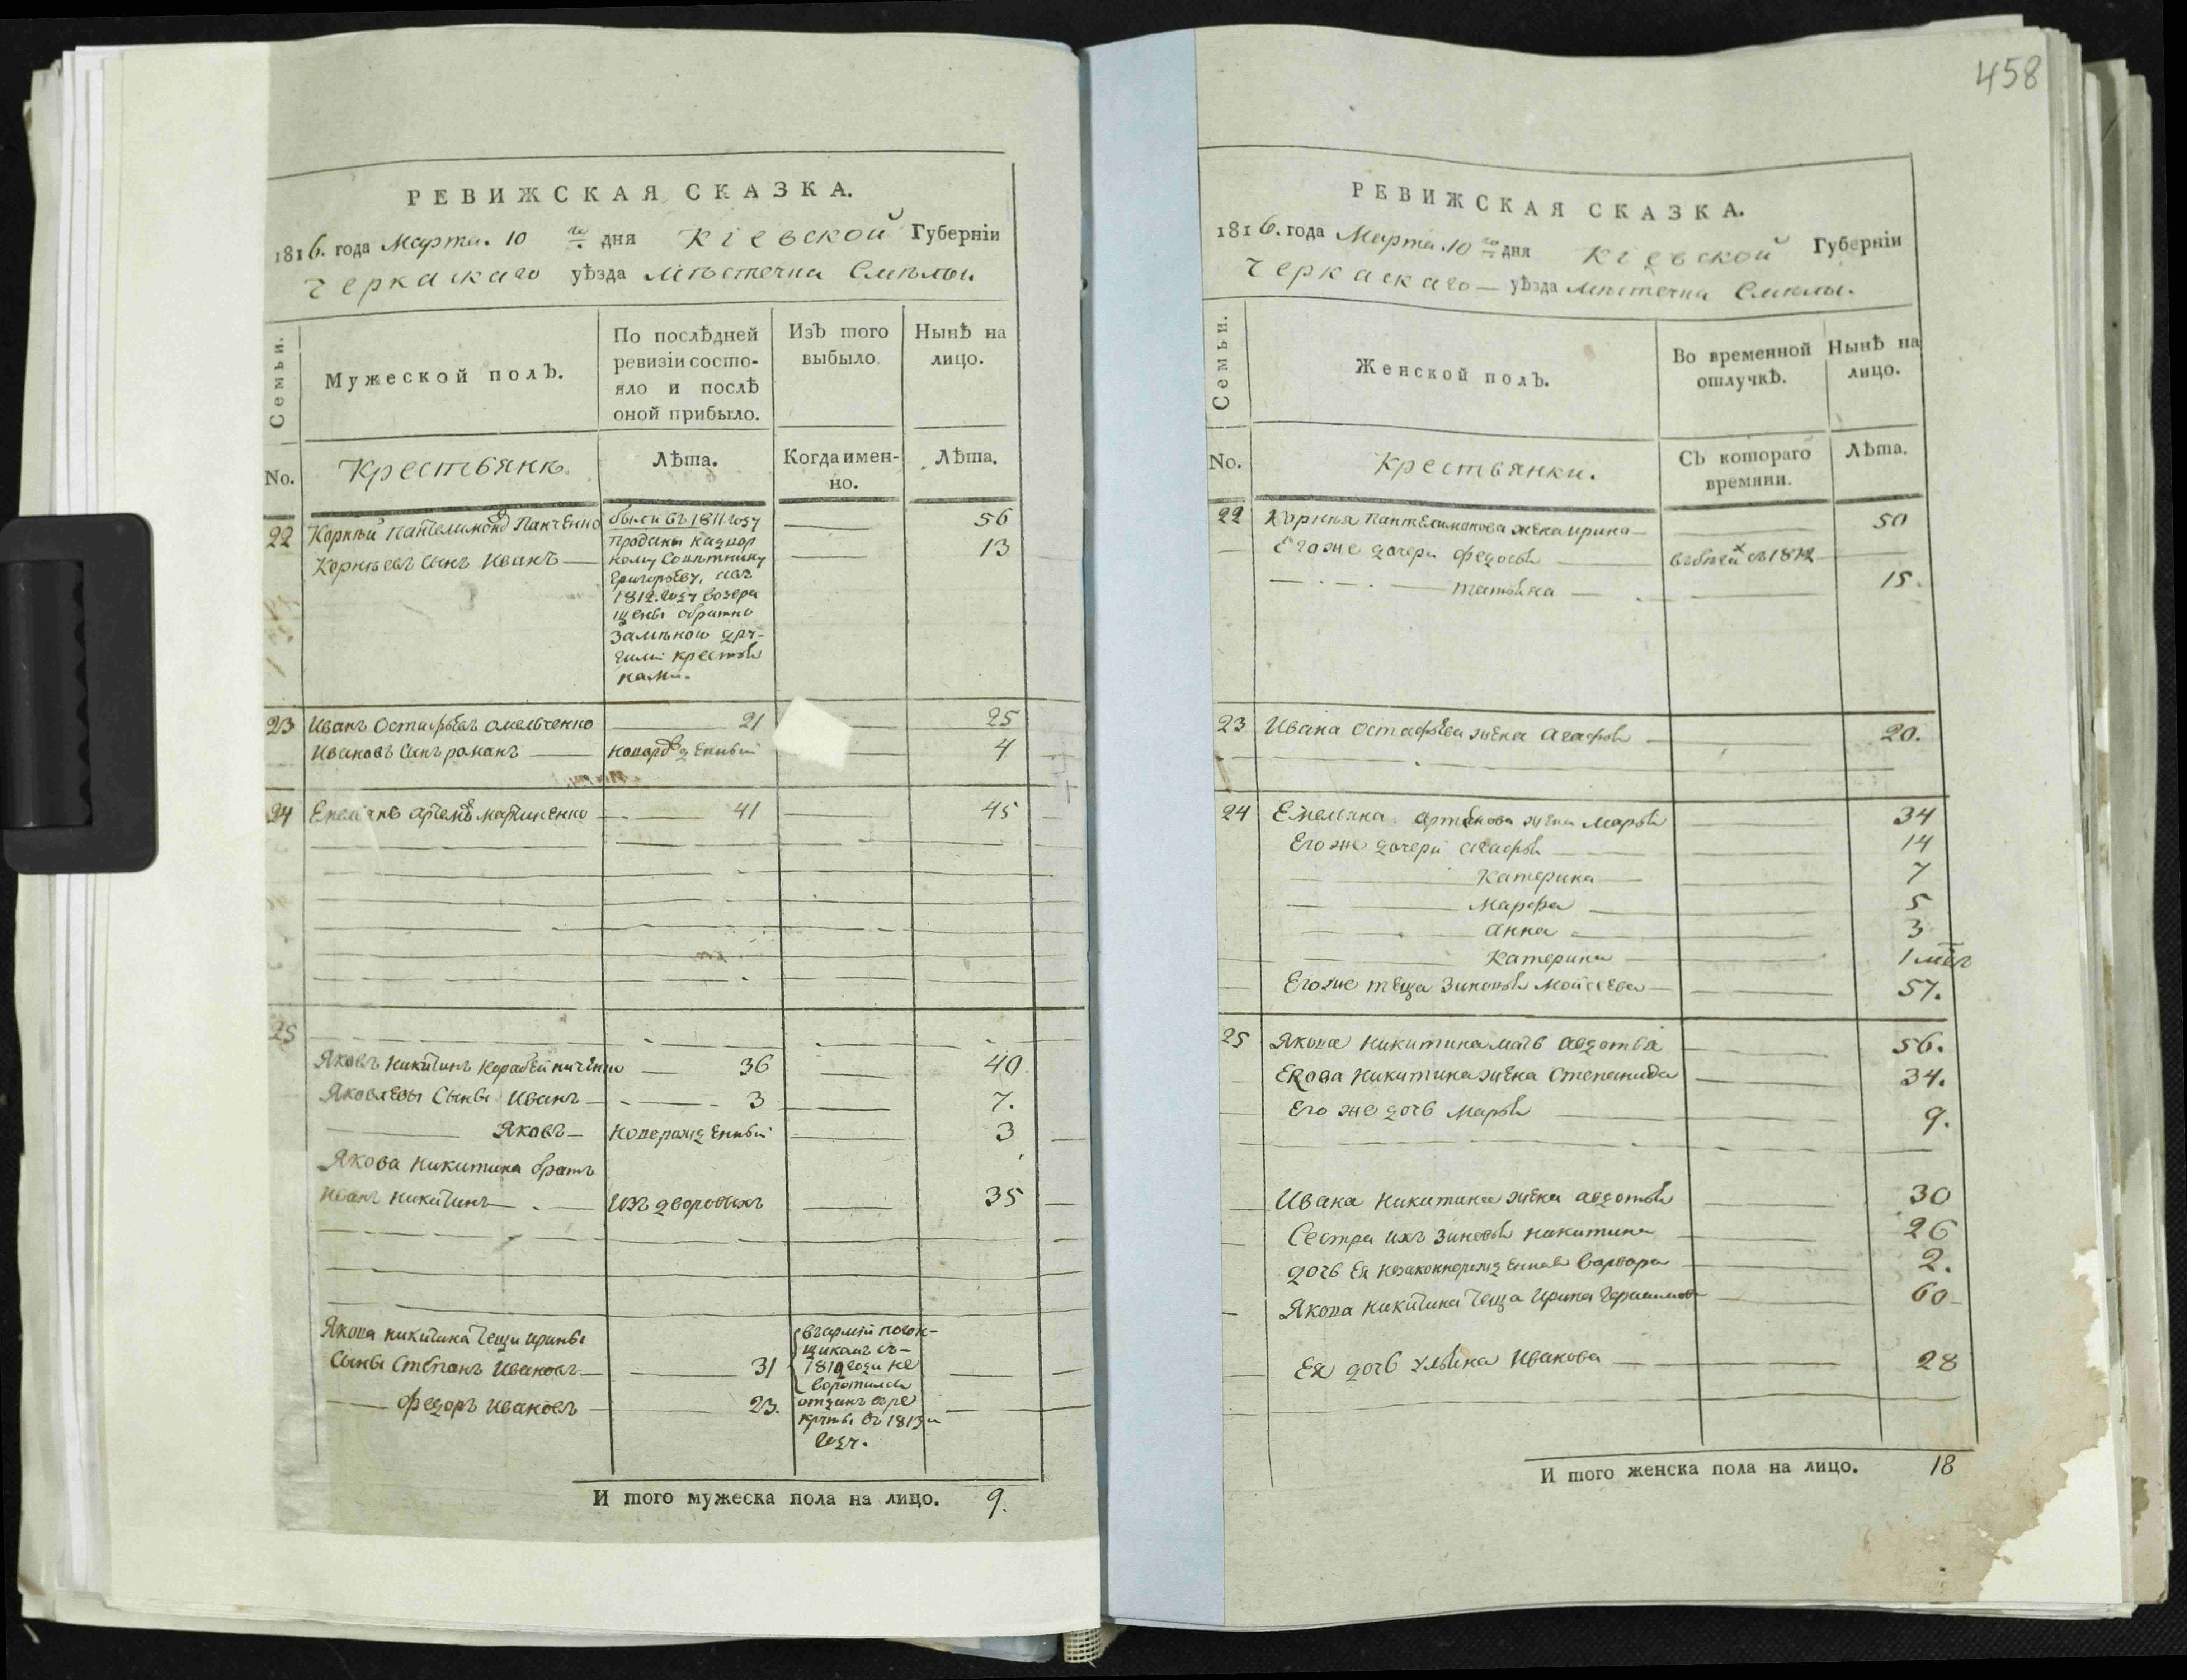 458
РЕВИЖСКАЯ СКАЗКА.
1816. года Марта. 10 го дня Кіевской Губерніи
Черкаскаго уѣзда мѣстечка Смѣлы.
Семьи.
Мужеской полъ.
По послѣдней
ревизіи состо-
яло и послѣ
оной прибыло.
Изъ того
выбыло.
Нынѣ на
лицо.
No.
Крестьянѣ.
Лѣта.
Когда имен-
но.
Лѣта.
22 Корнѣй Пантелимоновъ Панченко были въ 1811 году 56
проданы надвор
Корнѣевъ сынъ Иванъ ному Совѣтнику 13
Григорьеву, а въ
1812. году возвра
щены обратно
замѣною дру-
гими крестья
нами.
23 Иванъ Остафьевъ Омельченко 21 25
Ивановъ сынъ Романъ новорожденный 4
24 Емельянъ Артемовъ Мартиненко 41 45
25
Яковъ Никитинъ Коробейниченко 36 40
Яковлевы сыны Иванъ 3 7.
Яковъ новорожденный 3
Якова Никитина братъ
Иванъ Никитинъ изъ дворовыхъ 35
Якова Никитина тещи Ирины
сыны Степанъ Ивановъ 31
въ армій погон-
щикомъ съ
года не
воротился
Федоръ Ивановъ 23.
отданъ въ ре
круты въ 1813 м
году.
И того мужеска пола на лицо. 9.
РЕВИЖСКАЯ СКАЗКА.
1816. года Марта. 10 го дня Кіевской Губерніи
Черкаскаго уѣзда мѣстечка Смѣлы.
Семьи.
Женской полъ.
Во временной
отлучкѣ.
Нынѣ на
лицо.
No.
Крестьянки.
Съ котораго
времяни.
Лѣта.
22 Корнѣя Пантелимонова жена Ирина 50
Его же дочери Федосья въ бѣгахъ съ 1812
Татьяна 15.
23 Ивана Остафьева жена Агафья 20.
24 Емельяна Артемова жена Марья 34
Его же дочери Агафья 14
Катерина 7
Марфа 5
Анна 3
Катерина 1 мѣс
Его же теща Зиновья Мойсеева 57.
25 Якова Никитина мать Авдотья 56.
Екова Никитина жена Степанида 34.
Его же дочь Марья 9.
Ивана Никитина жена Авдотья 30
Сестра ихъ Зиновья Никитина 26
дочь Ея незаконнорожденная Варвара 2.
Якова Никитина теща Ирина Герасимова 60
Ея дочь Ульяна Иванова 28
И того женска пола на лицо. 18